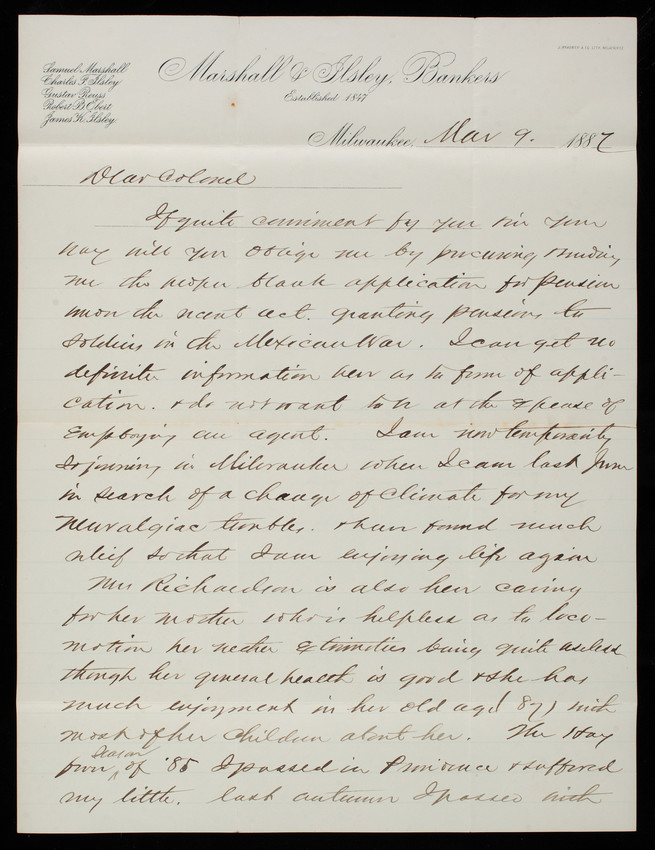 Samuel Marshall
Charles F. Ilsley
Gustav Reuss
Robert B. Ebert
James K. Ilsley
Marshall & Ilsley, Bankers
Established 1847
Milwaukee, Mar 9. 1887
Dear Colonel
If quite convenient for you on your
way will you oblige me by procuring & sending
me the proper blank application for Pension
under the recent act. granting pensions to
Soldiers in the Mexican War. I can get no
definite information here as to form of appli-
cation. & do not want to be at the expense of
Employing an agent. I am now temporarily
sojourning in Milwaukee where I came last June
in search of a change of Climate for my
Neuralgiac troubles. & have found much
relief so that I am enjoying life again
Mrs Richardson is also here caring
for her mother who is helpless as to loco-
motion her nether extremities being quite useless
though her general health is good & she has
much enjoyment in her old age (87) with
most of her children about her. The Hay
fever season of '85 I passed in Providence & suffered
very little. last autumn I passed with